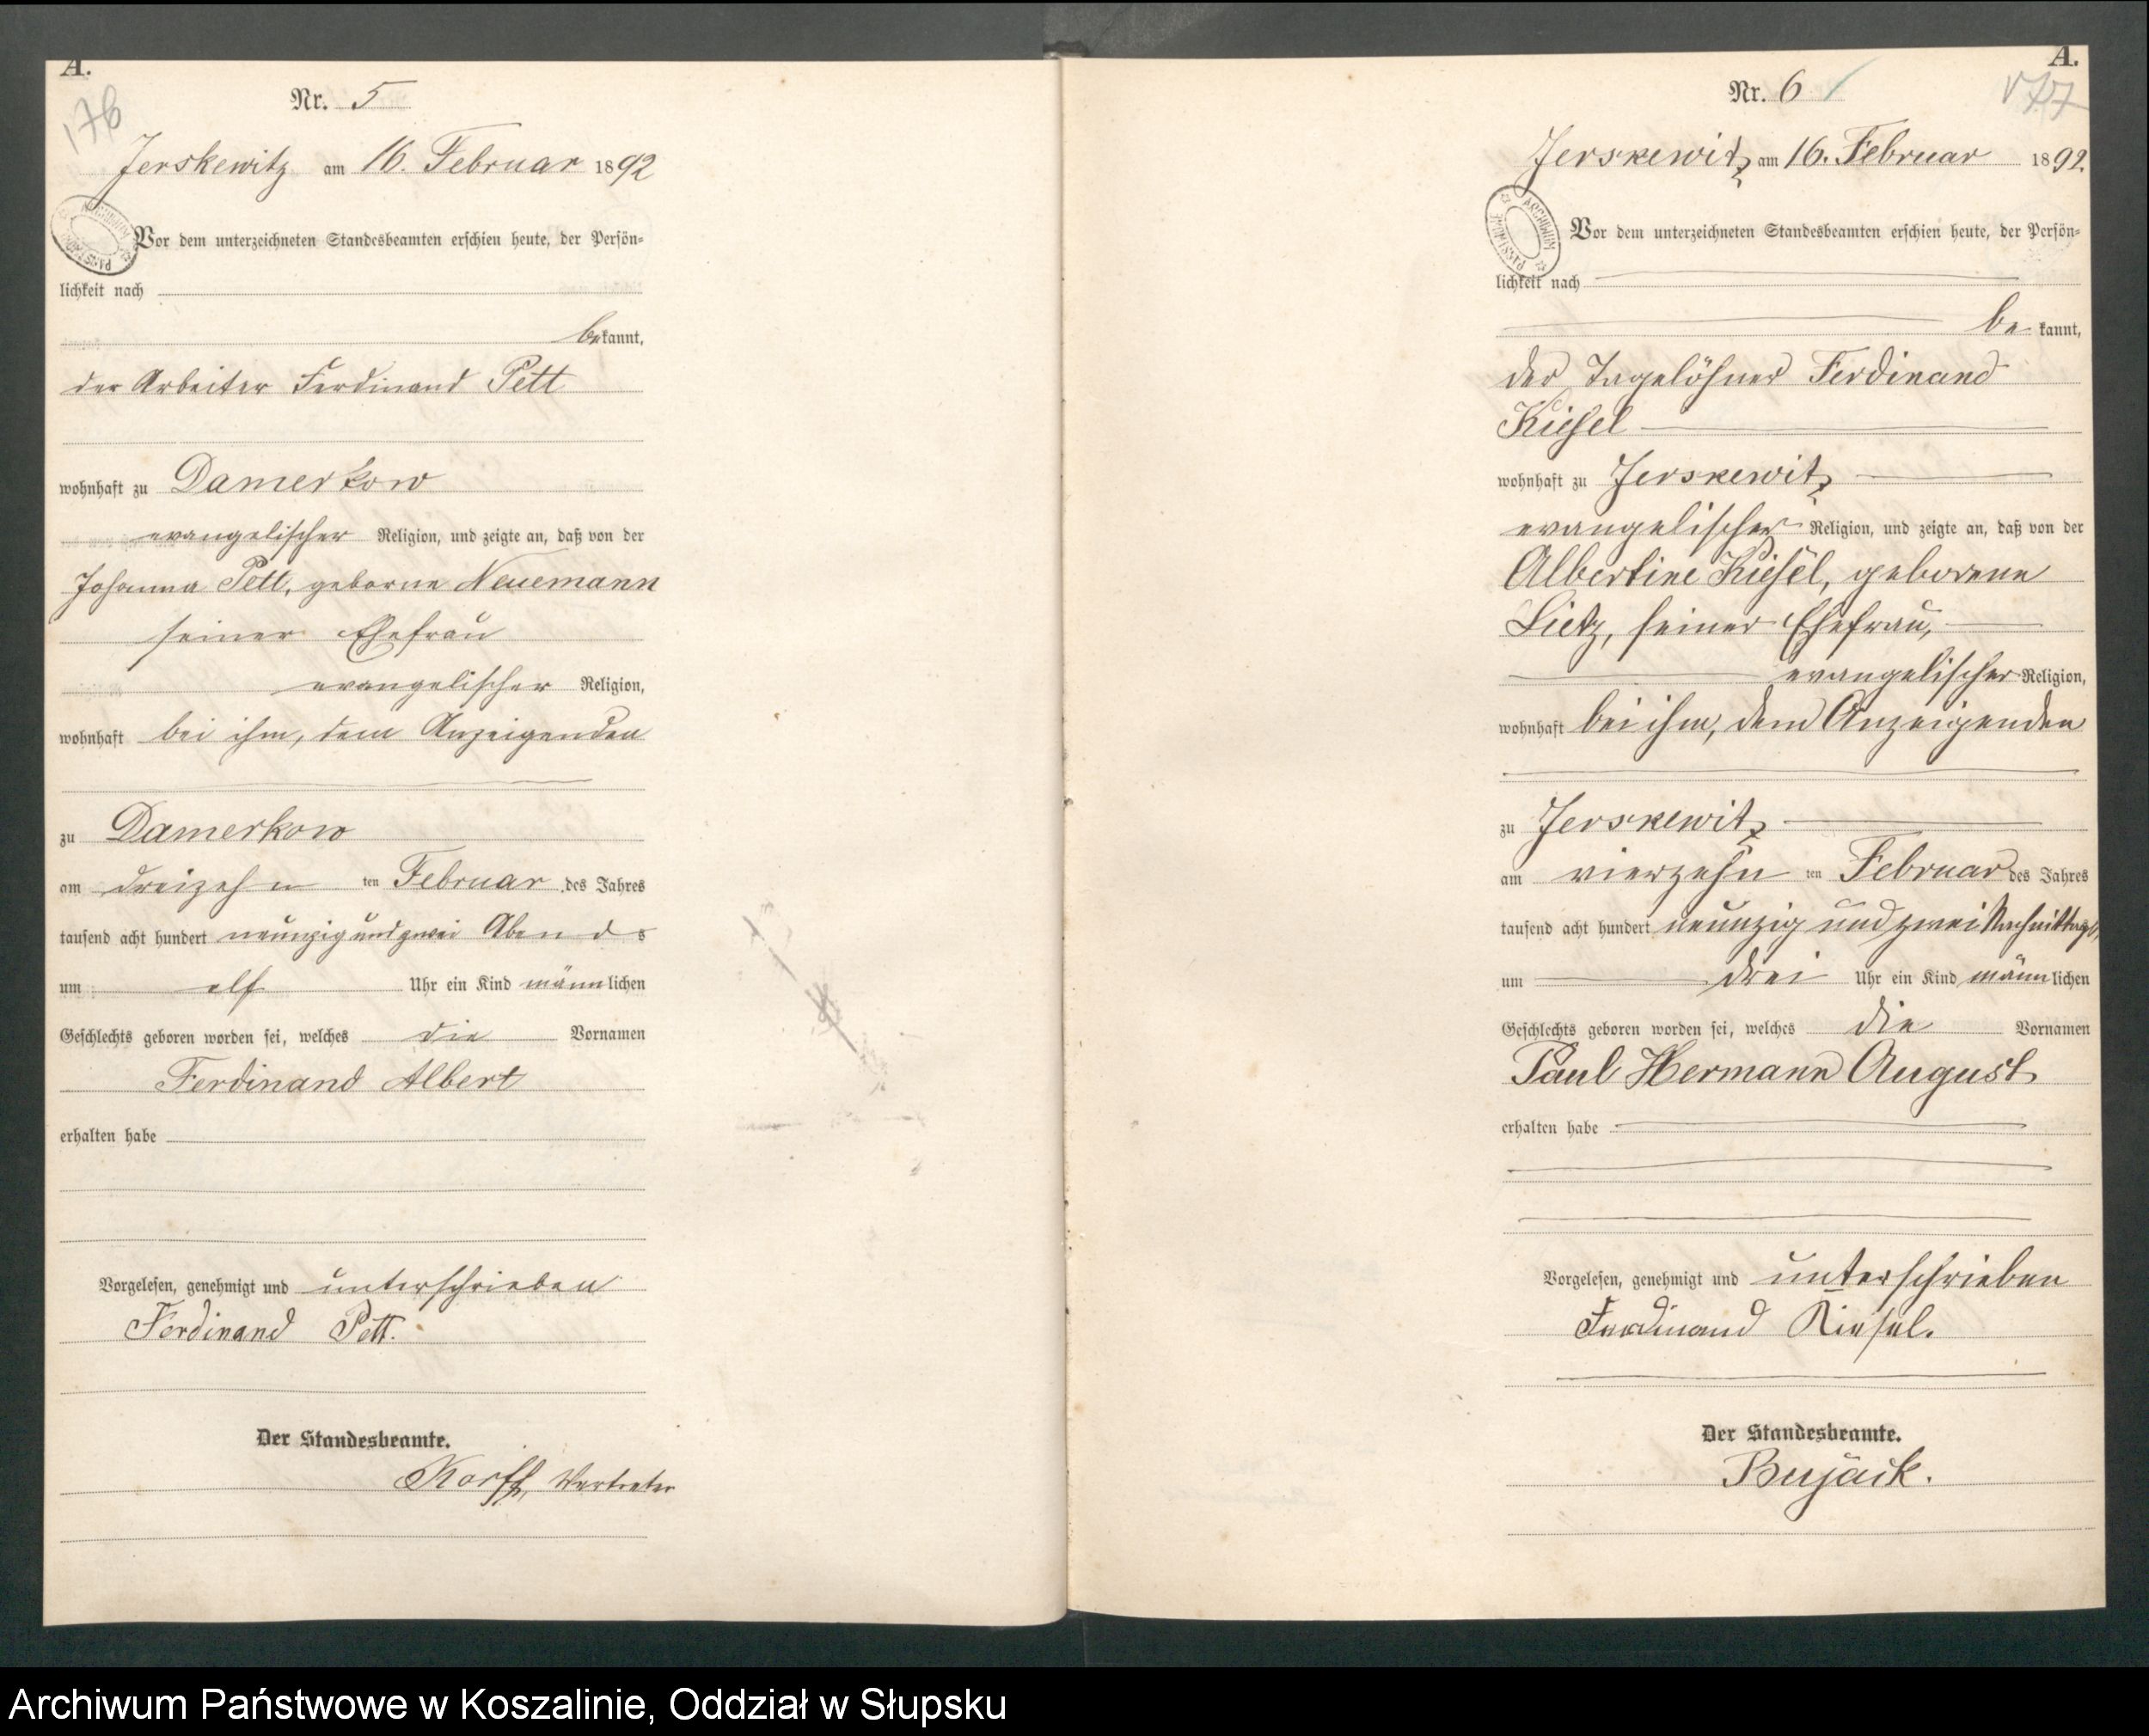 A.
176
Nr. 5
Jerskewitz am 16. Februar 1892
ARCHIWUM PAŃSTWOWE
Vor dem unterzeichneten Standesbeamten erschien heute, der Persön=
lichkeit nach
bekannt,
der Arbeiter Ferdinand Pett
wohnhaft zu Damerkow
evangelischer Religion, und zeigte an, daß von der
Johanna Pett, geborne Neuemann
seiner Ehefrau
evangelischer Religion,
wohnhaft bei ihm, dem Anzeigenden
zu Damerkow
am dreizehn ten Februar des Jahres
tausend acht hundert neunzig und zwei Abends
um elf Uhr ein Kind männlichen
Geschlechts geboren worden sei, welches die Vornamen
Ferdinand Albert
erhalten habe
Vorgelesen, genehmigt und unterschrieben
Ferdinand Pett.
Der Standesbeamte.
Korff, Vertreter
A.
177
Nr. 6
Jerskewitz am 16. Februar 1892.
ARCHIWUM PAŃSTWOWE
Vor dem unterzeichneten Standesbeamten erschien heute, der Persön=
lichkeit nach
be kannt,
der Tagelöhner Ferdinand
Kiesel
wohnhaft zu Jerskewitz
evangelischer Religion, und zeigte an, daß von der
Albertine Kiesel, geborene
Lietz, seiner Ehefrau,
evangelischer Religion,
wohnhaft bei ihm, dem Anzeigenden
zu Jerskewitz
am vierzehn ten Februar des Jahres
tausend acht hundert neunzig und zwei Nachmittags,
um drei Uhr ein Kind männlichen
Geschlechts geboren worden sei, welches die Vornamen
Paul Hermann August
erhalten habe
Vorgelesen, genehmigt und unterschrieben
Ferdinand Kiesel.
Der Standesbeamte.
Bujack.
Archiwum Państwowe w Koszalinie, Oddział w Słupsku